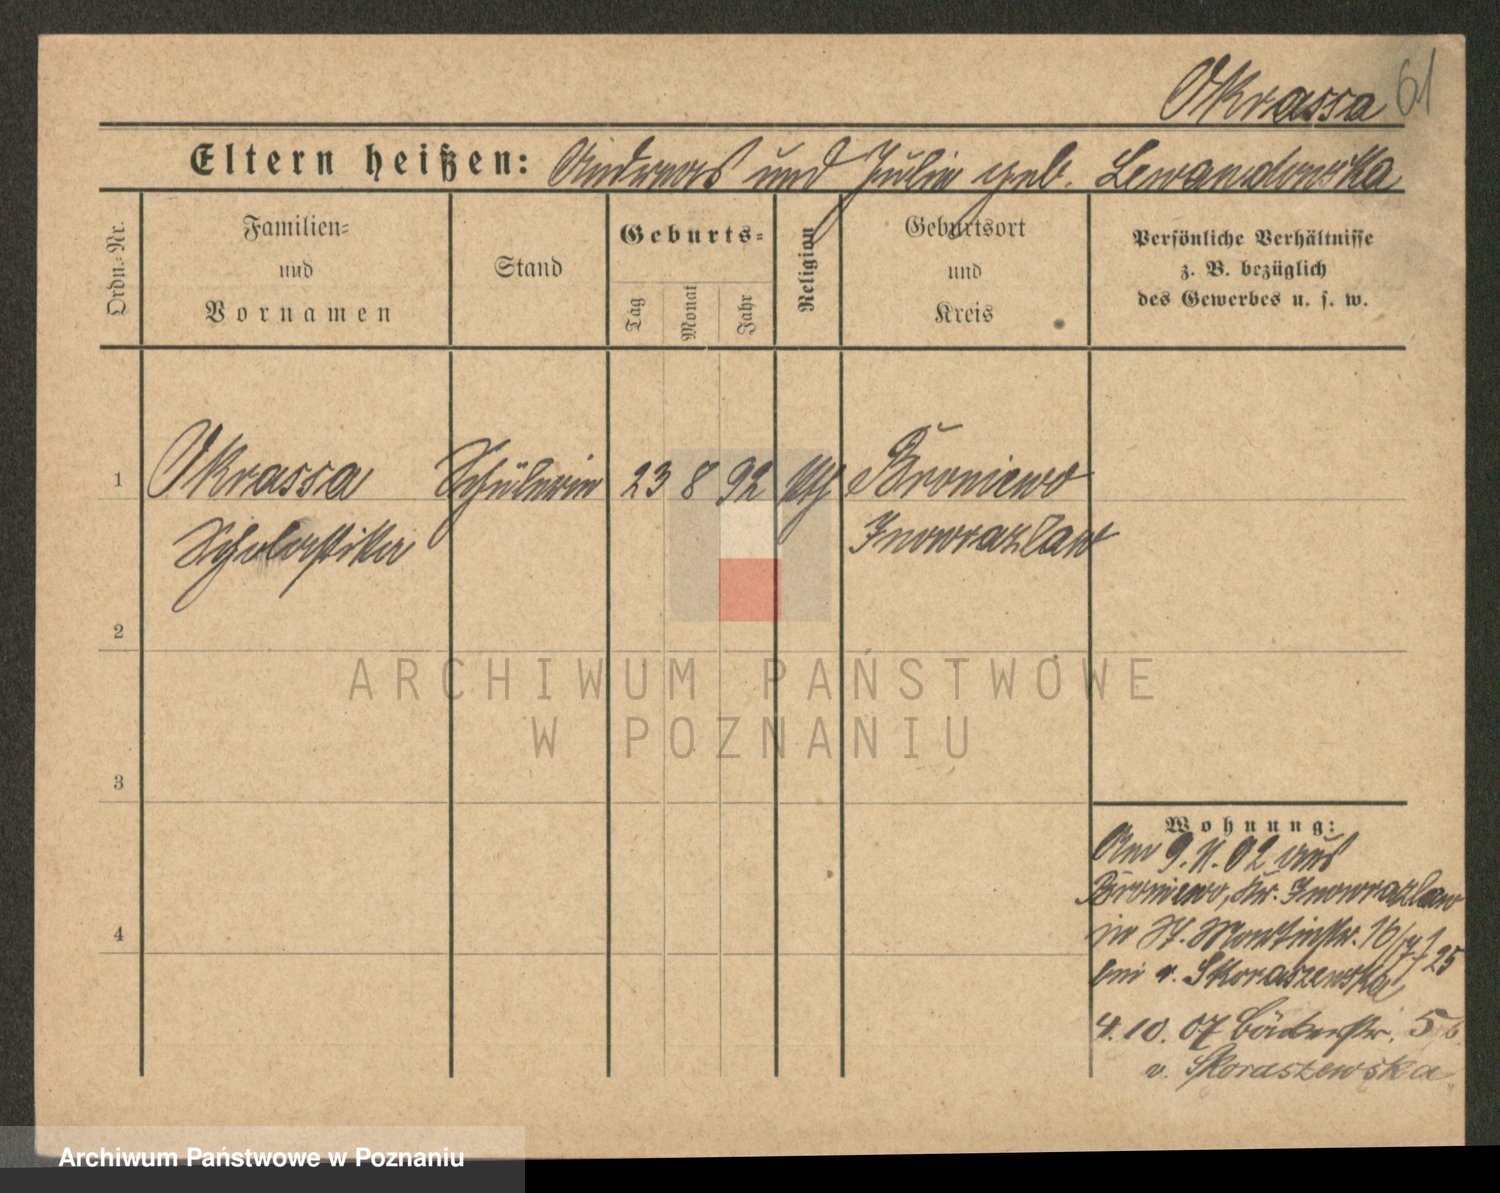 Okrassa 61
Eltern heißen: Andreas und Julie geb. Lewandowska
Ordn.-Nr.
Familien-
und
Vornamen
Stand
Geburts-
Tag
Monat
Jahr
Religion
Geburtsort
und
Kreis
Persönliche Verhältnisse
z. B. bezüglich
des Gewerbes u. s. w.
1 Okrassa Schülerin 23 8 92 Broniewo
Scholastika Inowrazlaw
2
3
4
Wohnung:
Am 9. 11. 02 aus
Broniewo, Kr. Inowrazlaw
in St. Martinstr. 16/17
bei v. Skoraszewska 25
4. 10. 07 Bäckerstr. 5
v. Skoraszewska
ARCHIWUM PAŃSTWOWE
W POZNANIU
Archiwum Państwowe w Poznaniu